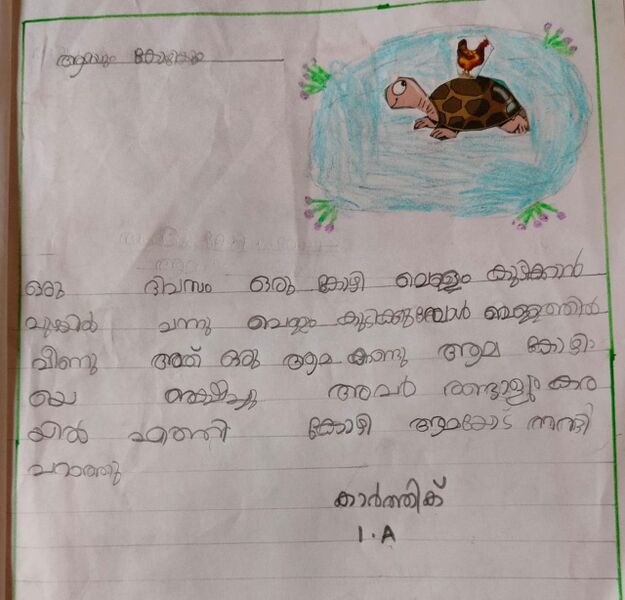 ആമയും കോഴിയും
ഒരു ദിവസം ഒരു കോഴി വെള്ളം കുടിക്കാൻ
പുഴയിൽ ചന്നു വെള്ളം കുടിക്കുമ്പോൾ വെള്ളത്തിൽ
വീണു അത് ഒരു ആമ കണ്ടു ആമ കോഴി
യെ രക്ഷിച്ചു അവർ രണ്ടാളും കര
യിൽ എത്തി കോഴി ആമകോട് നന്ദി
പറഞ്ഞു
കാർത്തിക്
1.A